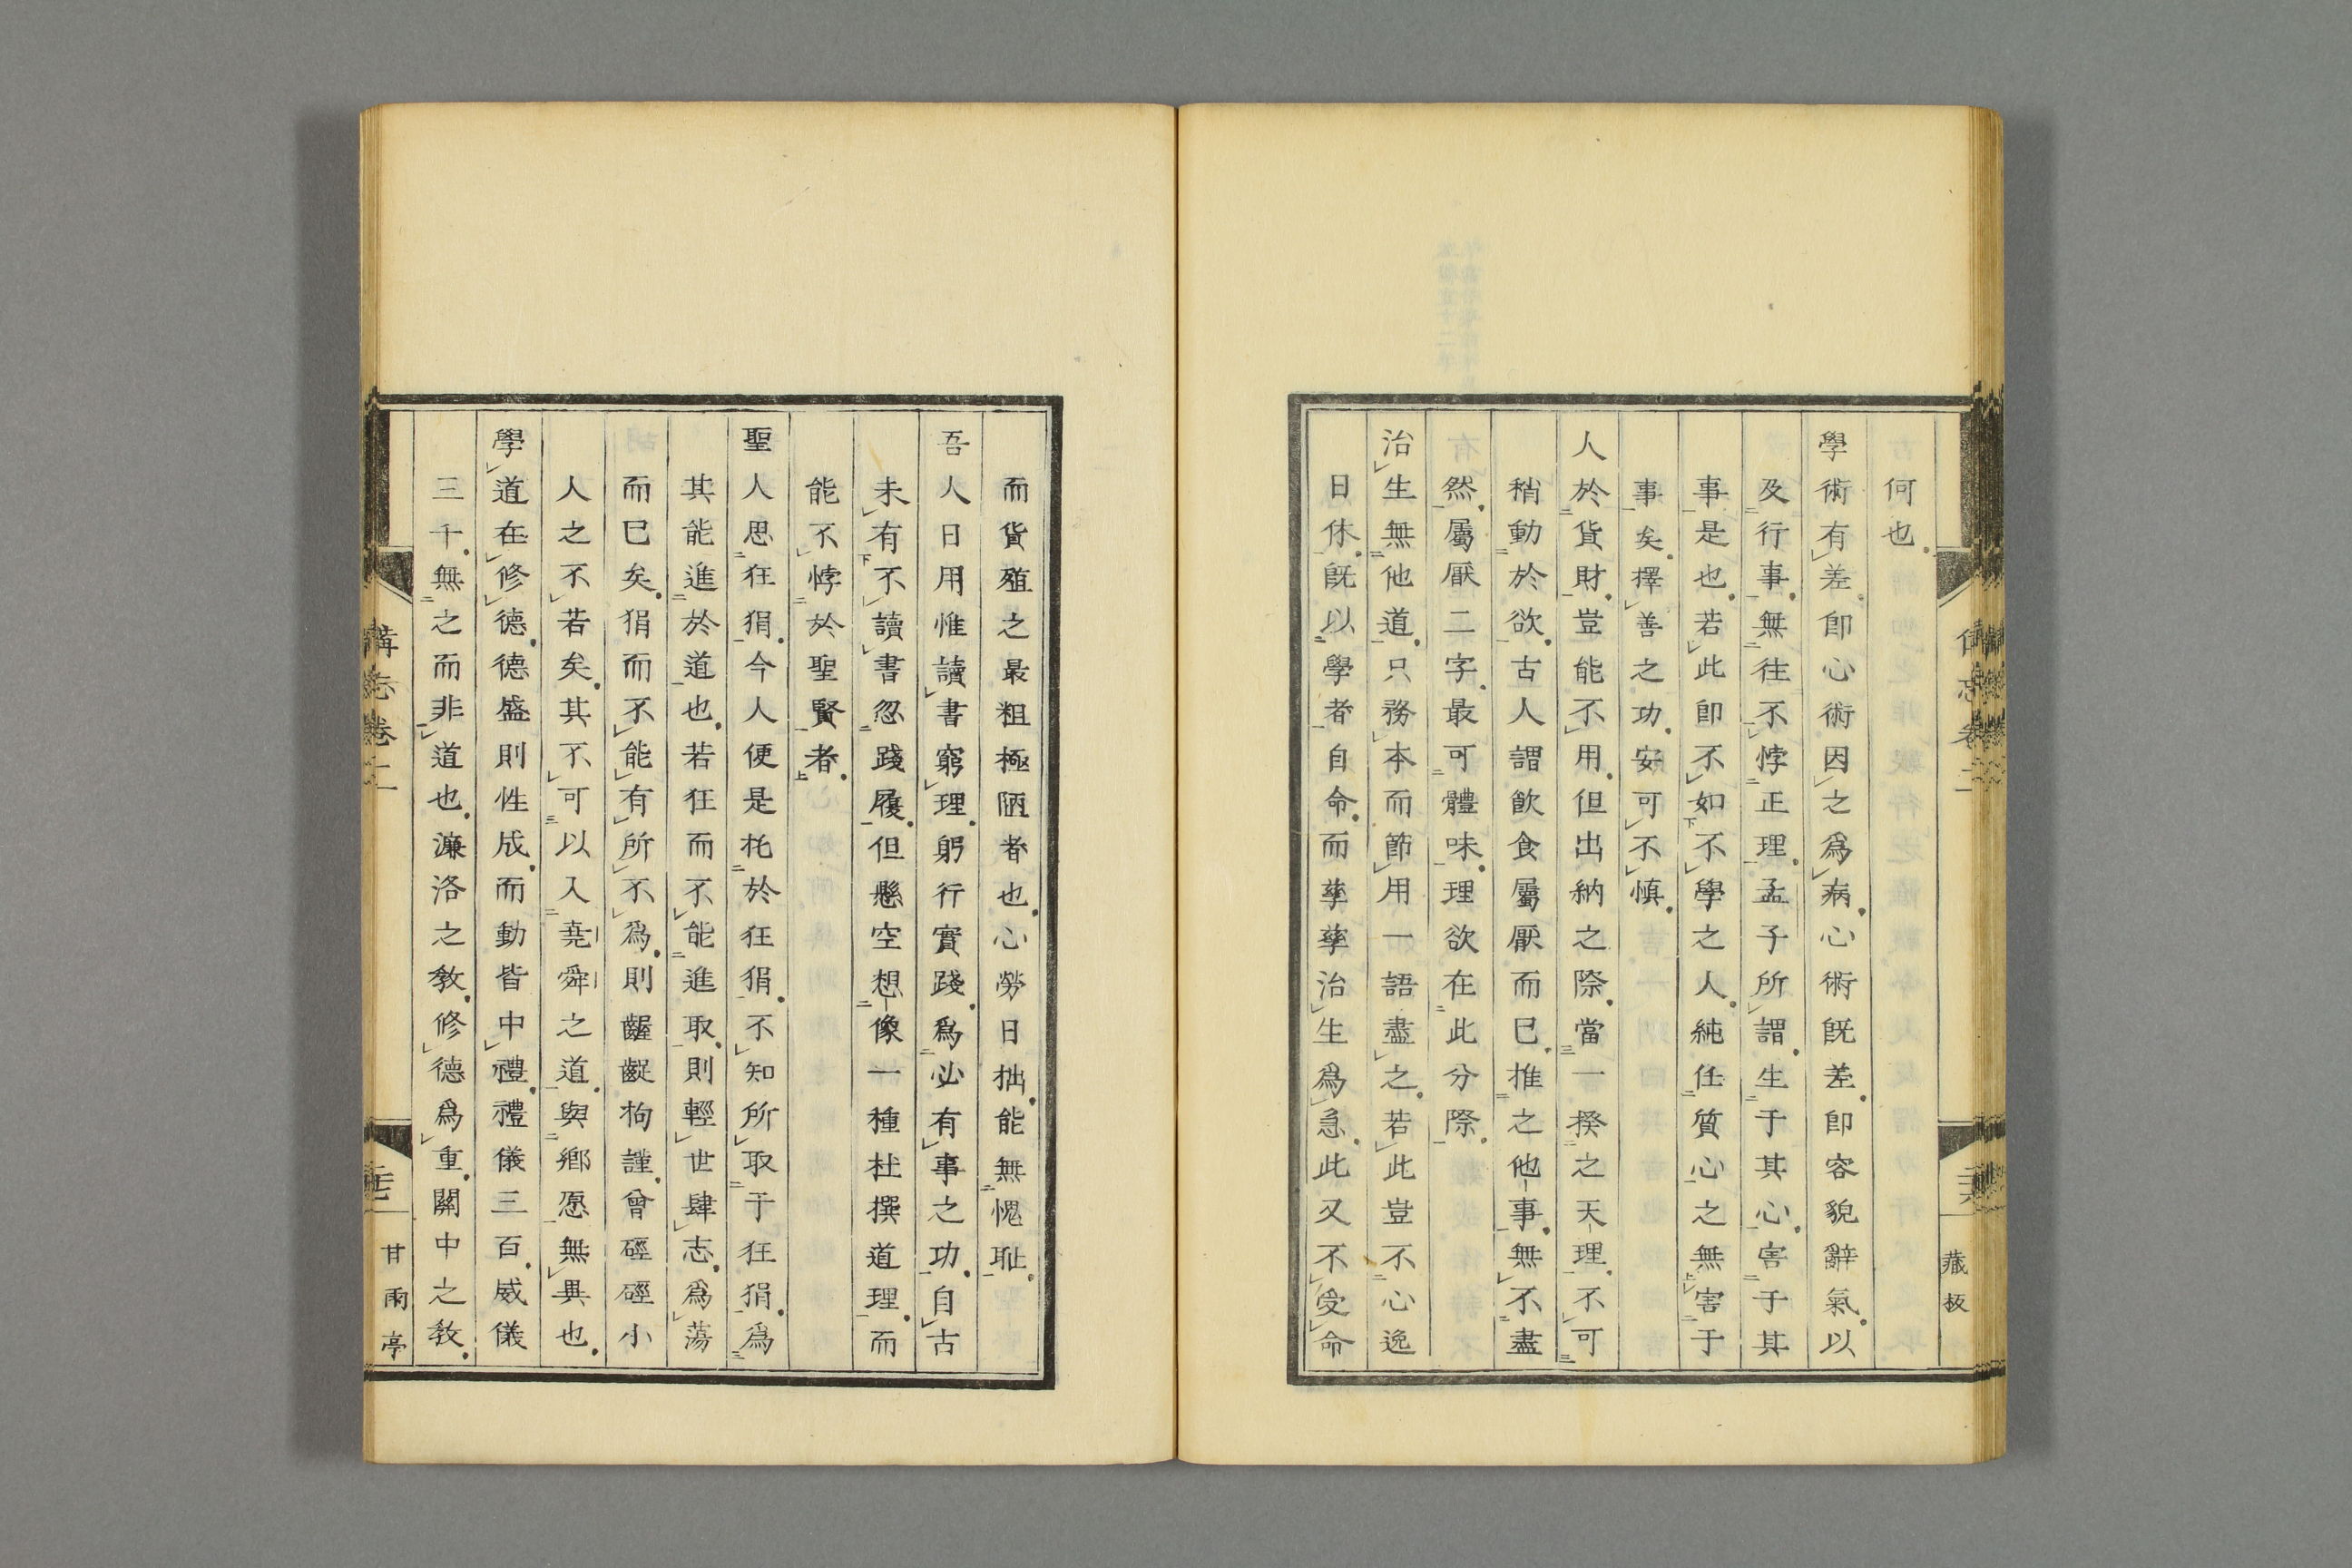 何也
學術有差卽心術因之爲病心術既差卽容貌辭氣以
及行事無往不悖正理孟子所謂生于其心害于其
事是也若此卽不如不學之人純任質心之無害于
事矣擇善之功安可不愼
人於貨財豈能不用但出納之際當一揆之天理不可
稍動於欲古人謂飮食屬厭而已推之他事無不盡
然屬厭二字最可體味理欲在此分際
治生無他道只務本而節用一語盡之若此豈不心逸
日休既以學者自命而孳孳治生爲急此又不受命
而貨殖之最粗極陋者也心勞日拙能無愧耻
吾人日用惟讀書窮理躬行實踐爲必有事之功自古
未有不讀書忽踐履但懸空想像一種杜撰道理而
能不悖於聖賢者
聖人思狂狷今人便是托於狂狷不知所取于狂狷爲
其能進於道也若狂而不能進取則輕世肆志爲蕩
而已矣狷而不能有所不爲則齷齪拘謹曾硜硜小
人之不若矣其不可以入堯舜之道與鄕愿無異也
學道在修德德盛則性成而動皆中禮禮儀三百威儀
三千無之而非道也濂洛之敎修德爲重關中之敎
藏板
甘雨亭